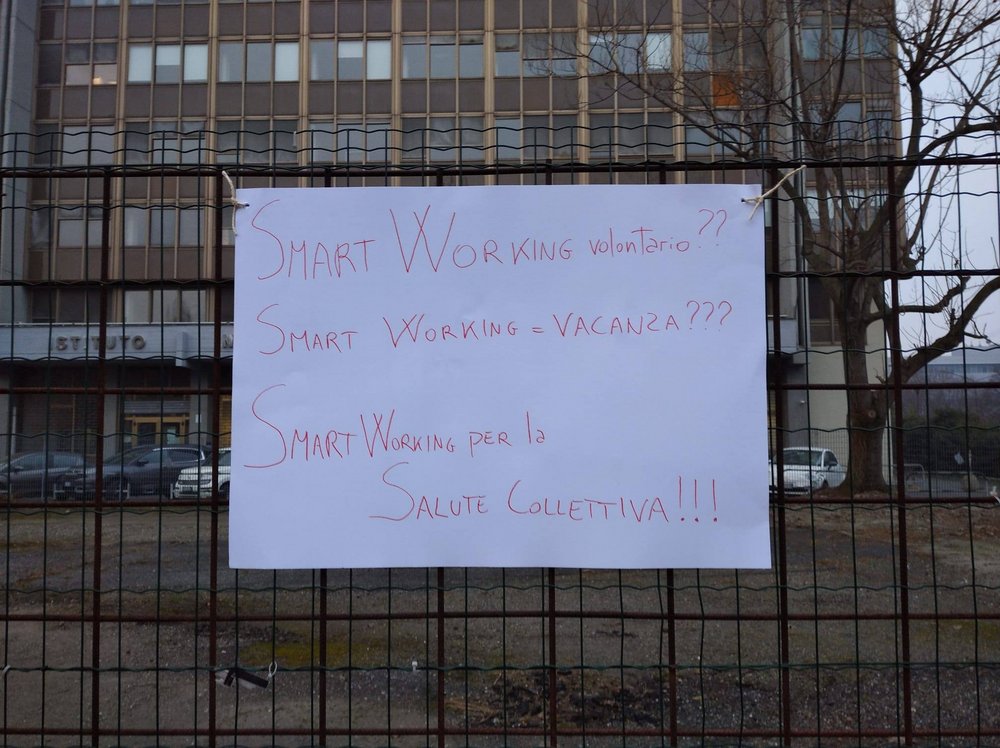 SMART WORKING volontario??
SMART WORKING = VACANZA???
SMART WORKING PER la
SALUTE COLLETTIVA!!!